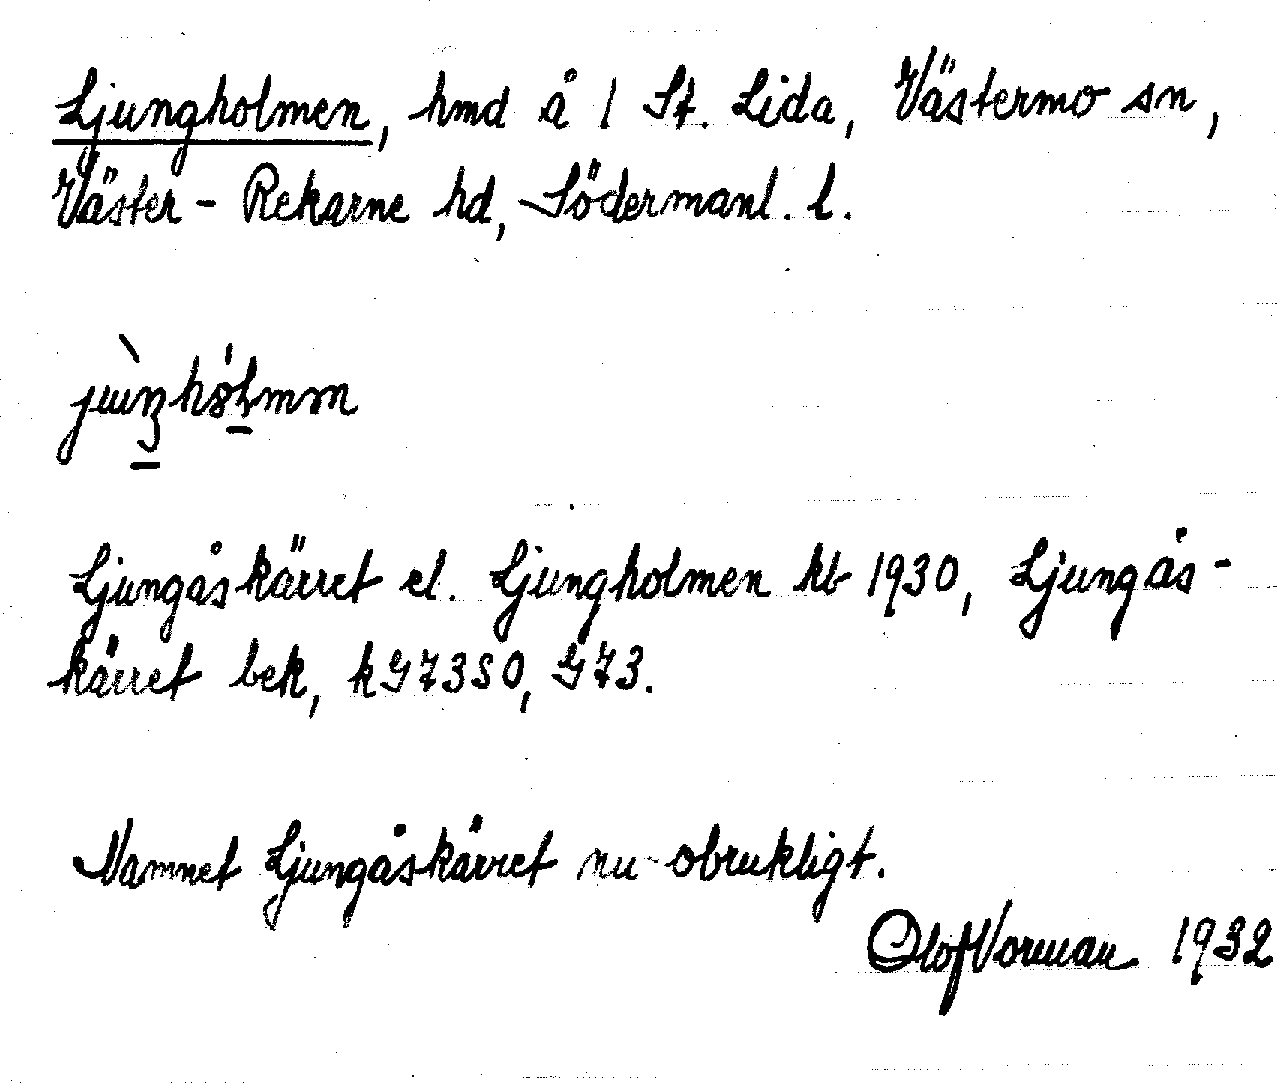 Ljungholmen, hmd å 1 St. Lida, Västermo sn,
Väster-Rekarne hd, Södermanl. l.
Ljungåskärret el. Ljungholmen kb 1930, Ljungås-
kärret bek, kG73SO, G73.
Namnet Ljungåskärret nu obrukligt.
Olof Vorman 1932